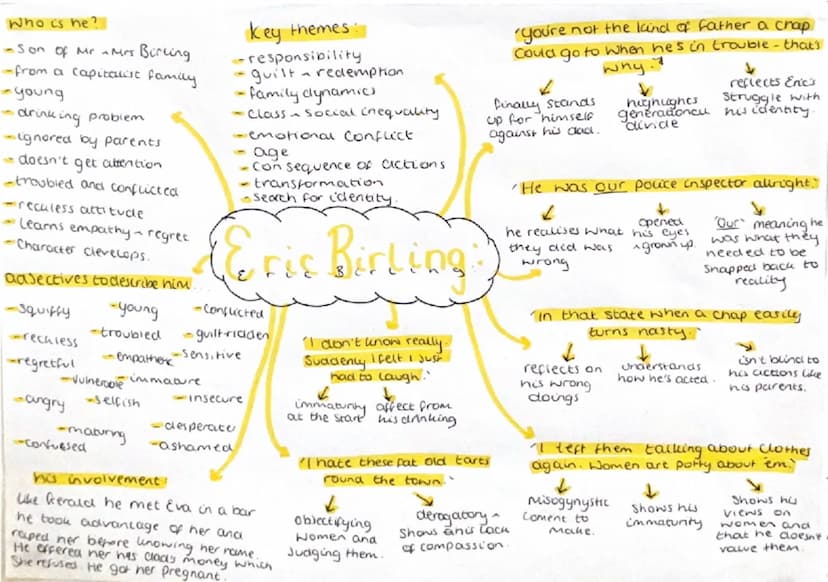 Who is he?
- Son of Mr + Mrs Birling
- from a capitalist family
- young
- drinking problem
- ignored by parents
- doesn't get attention
- troubled and conflicted
- reckless attitude
- learns empathy + regret
- Character develops.
Adjectives to describe him...
- squiffy - young - conflicted
- reckless - troubled - guilt-ridden
- regretful - empathetic - sensitive
- vulnerable - immature
- angry - selfish - insecure
- maturing - desperate
- confused - ashamed
his involvement:
like Gerald he met Eva in a bar
he took advantage of her and
raped her before knowing her name.
He offered her his dads money which
She refused. He got her pregnant.
Key themes:
- responsibility
- guilt + redemption
- family dynamics
- class + social inequality
- emotional conflict
- age
- consequence of actions
- transformation
- search for identity.
Eric Birling:
Eric Birling
'I don't know really.
Suddenly I felt I just
had to laugh.'
immaturity
at the start
affect from
his drinking
'I hate these fat old tarts
round the town.'
objectifying
women and
judging them.
derogatory +
shows Eric's lack
of compassion.
'you're not the kind of father a chap
could go to when he's in trouble - that's
why.'
finally stands
up for himself
against his dad.
highlights
generational
divide
reflects Eric's
struggle with
his identity.
'He was our police inspector alright.'
he realises what
they did was
wrong
opened
his eyes
+ grown up.
'Our' meaning he
was what they
needed to be
snapped back to
reality
'In that state when a chap easily
turns nasty.'
reflects on
his wrong
doings
understands
how he's acted.
isn't blind to
his actions like
his parents.
'I left them talking about clothes
again. Women are potty about 'em.'
Misogynystic
coment to
make.
Shows his
immaturity
Shows his
views on
women and
that he doesn't
value them.